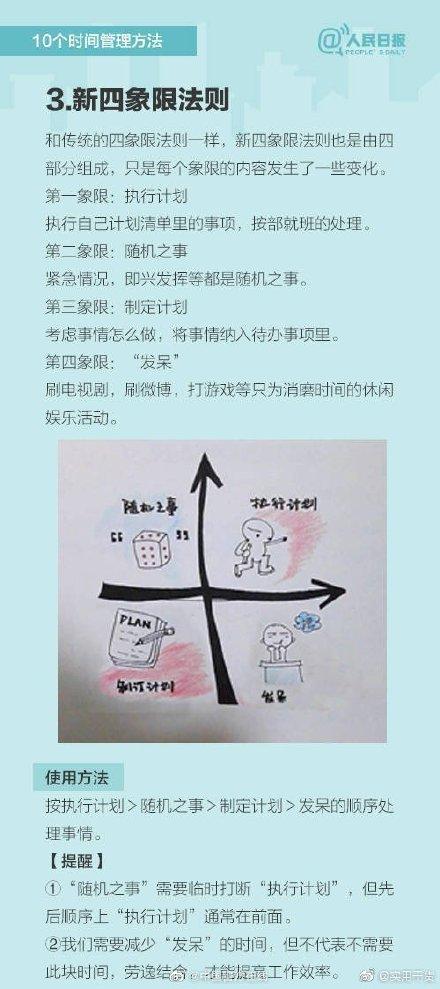 10个时间管理方法
@人民日报
PEOPLE'S DAILY
3.新四象限法则
和传统的四象限法则一样，新四象限法则也是由四
部分组成，只是每个象限的内容发生了一些变化。
第一象限：执行计划
执行自己计划清单里的事项，按部就班的处理。
第二象限：随机之事
紧急情况，即兴发挥等都是随机之事。
第三象限：制定计划
考虑事情怎么做，将事情纳入待办事项里。
第四象限：“发呆”
刷电视剧，刷微博，打游戏等只为消磨时间的休闲
娱乐活动。
随机之事
执行计划
PLAN
制订计划
发呆
使用方法
按执行计划>随机之事>制定计划>发呆的顺序处
理事情。
【提醒】
①“随机之事”需要临时打断“执行计划”，但先
后顺序上“执行计划”通常在前面。
②我们需要减少“发呆”的时间，但不代表不需要
此块时间，劳逸结合，才能提高工作效率。
@实用干货